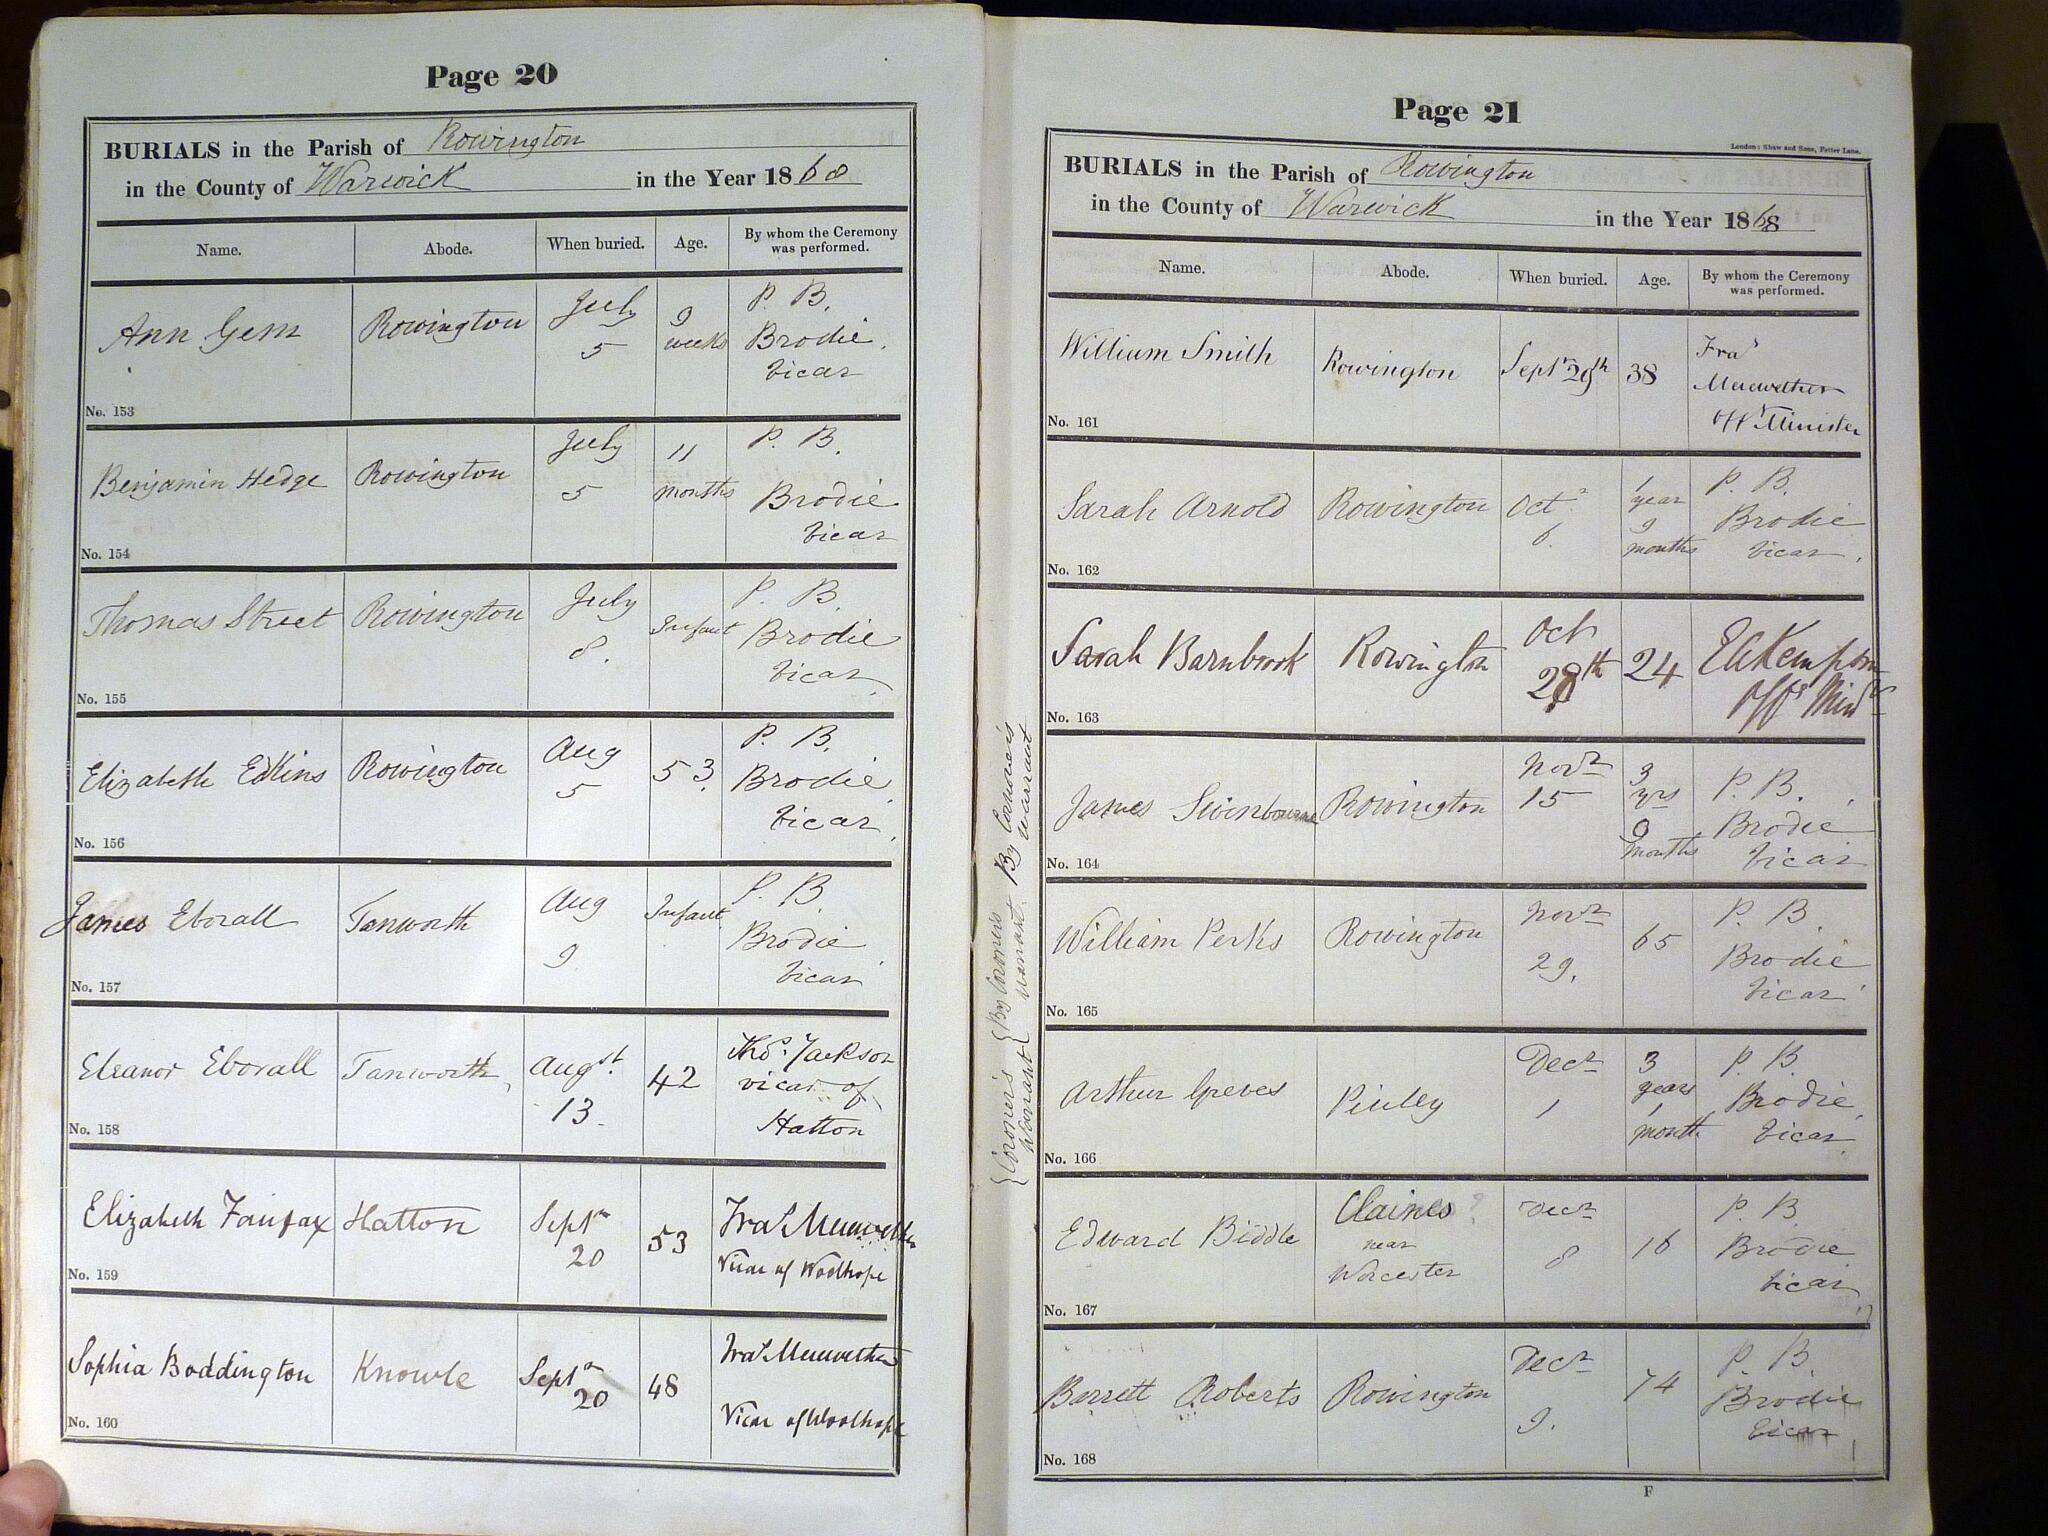 Page 20
BURIALS in the Parish of Rowington
in the County of Warwick in the Year 1868
Name. Abode. When buried. Age. By whom the Ceremony was performed.
Ann Gem Rowington July 5 9 weeks P. B. Brodie. Vicar
No. 153
Benjamin Hedge Rowington July 5 11 months P. B. Brodie Vicar
No. 154
Thomas Street Rowington July 8. Infant P. B. Brodie Vicar
No. 155
Elizabeth Edkins Rowington Aug 5 53. P. B. Brodie Vicar.
No. 156
James Eborall Tanworth Aug 9 Infant P. B. Brodie Vicar
No. 157
Eleanor Eborall Tanworth, Augst. 13. 42 Thos. Jackson vicar of Hatton
No. 158
Elizabeth Fairfax Hatton Septr 20 53 Fras Merewether Vicar of Woolhope
No. 159
Sophia Boddington Knowle Septr 20 48 Fras Merewether Vicar of Woolhope
No. 160
Page 21
London: Shaw and Sons, Fetter Lane.
BURIALS in the Parish of Rowington
in the County of Warwick in the Year 1868
Name. Abode. When buried. Age. By whom the Ceremony was performed.
William Smith Rowington Septr 29th 38 Fras Merewether Offr Minister
No. 161
Sarah Arnold Rowington Octr 6. 1 year 9 months P. B. Brodie Vicar.
No. 162
Sarah Barnbrook Rowington Oct 28th 24 Kempson Offg Minr
No. 163
James Swinbourne Rowington Novr 15 3 yrs 9 months P. B. Brodie Vicar
No. 164
William Perks Rowington Novr 29. 65 P. B. Brodie Vicar
No. 165
Arthur Greves Pinley Decr 1 3 years 1 month P. B. Brodie, Vicar
No. 166
Edward Biddle Claines? near Worcester Decr 8 16 P. B. Brodie Vicar
No. 167
Barrett Roberts Rowington Decr 9. 74 P. B. Brodie Vicar
No. 168
F
By Coroner's warrant
By Coroners warrant.
Coroner's Warrant